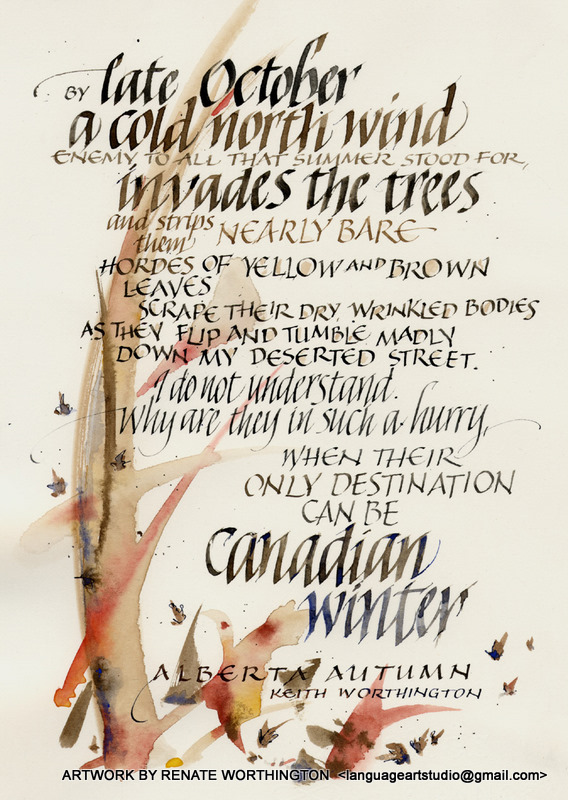 BY late October
a cold north wind
ENEMY TO ALL THAT SUMMER STOOD FOR,
invades the trees
and strips
them NEARLY BARE
HORDES OF YELLOW AND BROWN
LEAVES
SCRAPE THEIR DRY, WRINKLED BODIES
AS THEY FLIP AND TUMBLE MADLY
DOWN MY DESERTED STREET.
I do not understand.
Why are they in such a hurry,
WHEN THEIR
ONLY DESTINATION
CAN BE
Canadian
winter
ALBERTA AUTUMN
KEITH WORTHINGTON
ARTWORK BY RENATE WORTHINGTON <languageartstudio@gmail.com>